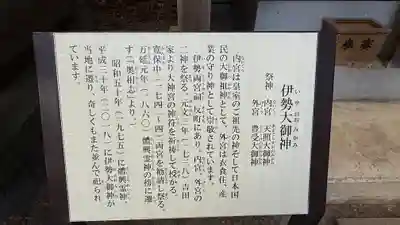 伊勢大御神
いせおおみかみ
祭神
内宮　天照大御神
外宮　豊受大御神
内宮は皇室のご祖先の神そして日本国
民の大御祖神として、外宮は衣食住、産
業の守り神として崇敬されています。
伊勢両宮祠　反町にあり。内宮、外宮の
二神を祭る。元文三年（一七三八）吉田
家より大神宮の神符を祈祷して授かる。
寛保中（一七四一〜四四）両宮を勧請し祭る。
万延元年（一八六〇）艫興霊神の傍に遷
す（『奥相志』より。）
昭和五十年（一九七五）に艫興霊神が
平成三十年（二〇一八）に伊勢大御神が
当地に遷り、奇しくもまた並んで祀られ
ています。